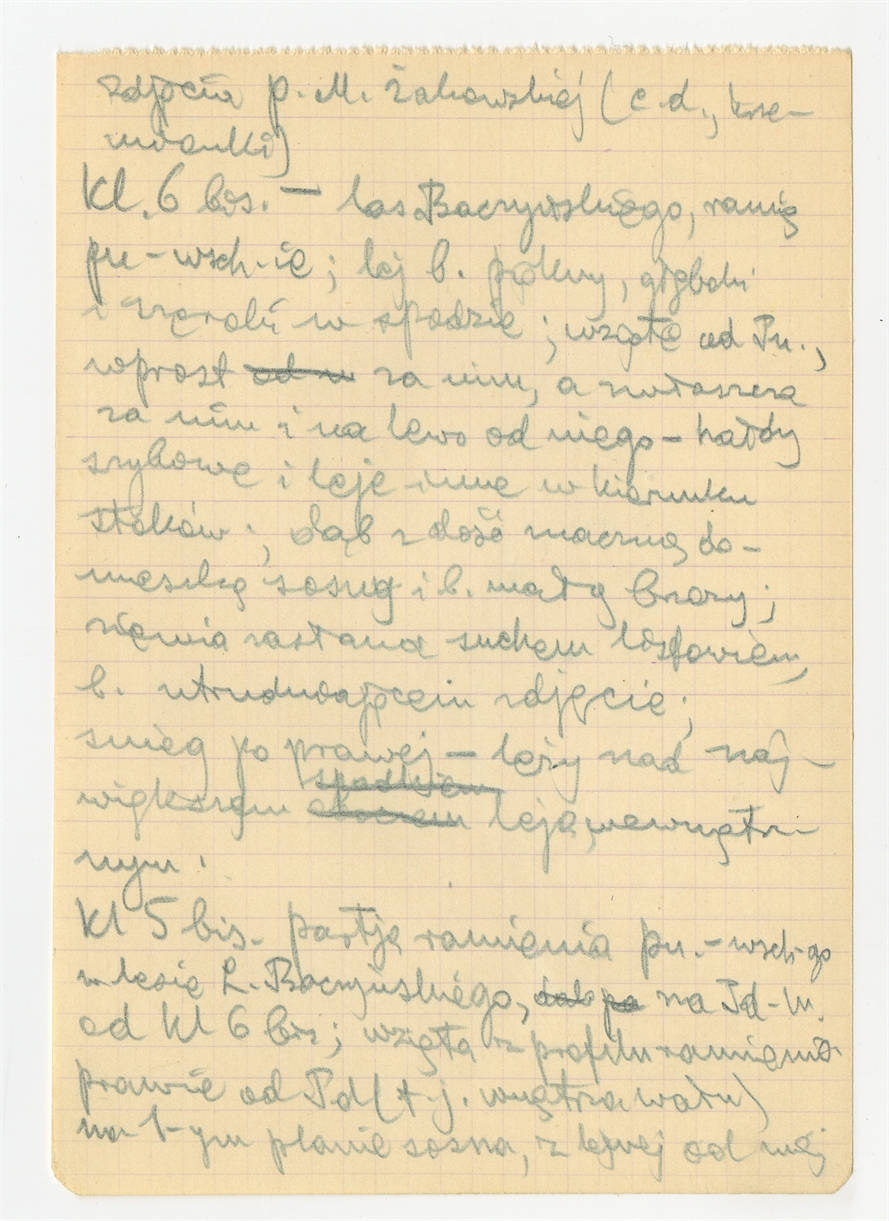 zdjęcia p. M. Żakowskiej (c.d., krze-
mionki)
Kl. 6 bis. – las Baczyńskiego, ramię
pn-wsch-ie; lej b. piękny, głęboki
i szeroki w spodzie; wzięte od Pn.,
wprost za nim, a zwłaszcza
za nim i na lewo od niego – hałdy
szybowe i leje inne w kierunku
stoków; dąb z dość znaczną do-
mieszką sosny i b. małą brzozy;
ziemia zasłana suchem listowiem,
b. utrudniającem zdjęcie;
śnieg po prawej – leży nad naj-
większym leja, wewnętrz-
nym.
Kl 5 bis. partja ramienia pn.-wsch-go
w lesie L. Baczyńskiego, na Pd-W.
od Kl 6 bis; wzięta z profilu ramienia
prawie od Pd (t.j. wnętrza wału)
na 1-ym planie sosna, z lewej od niej